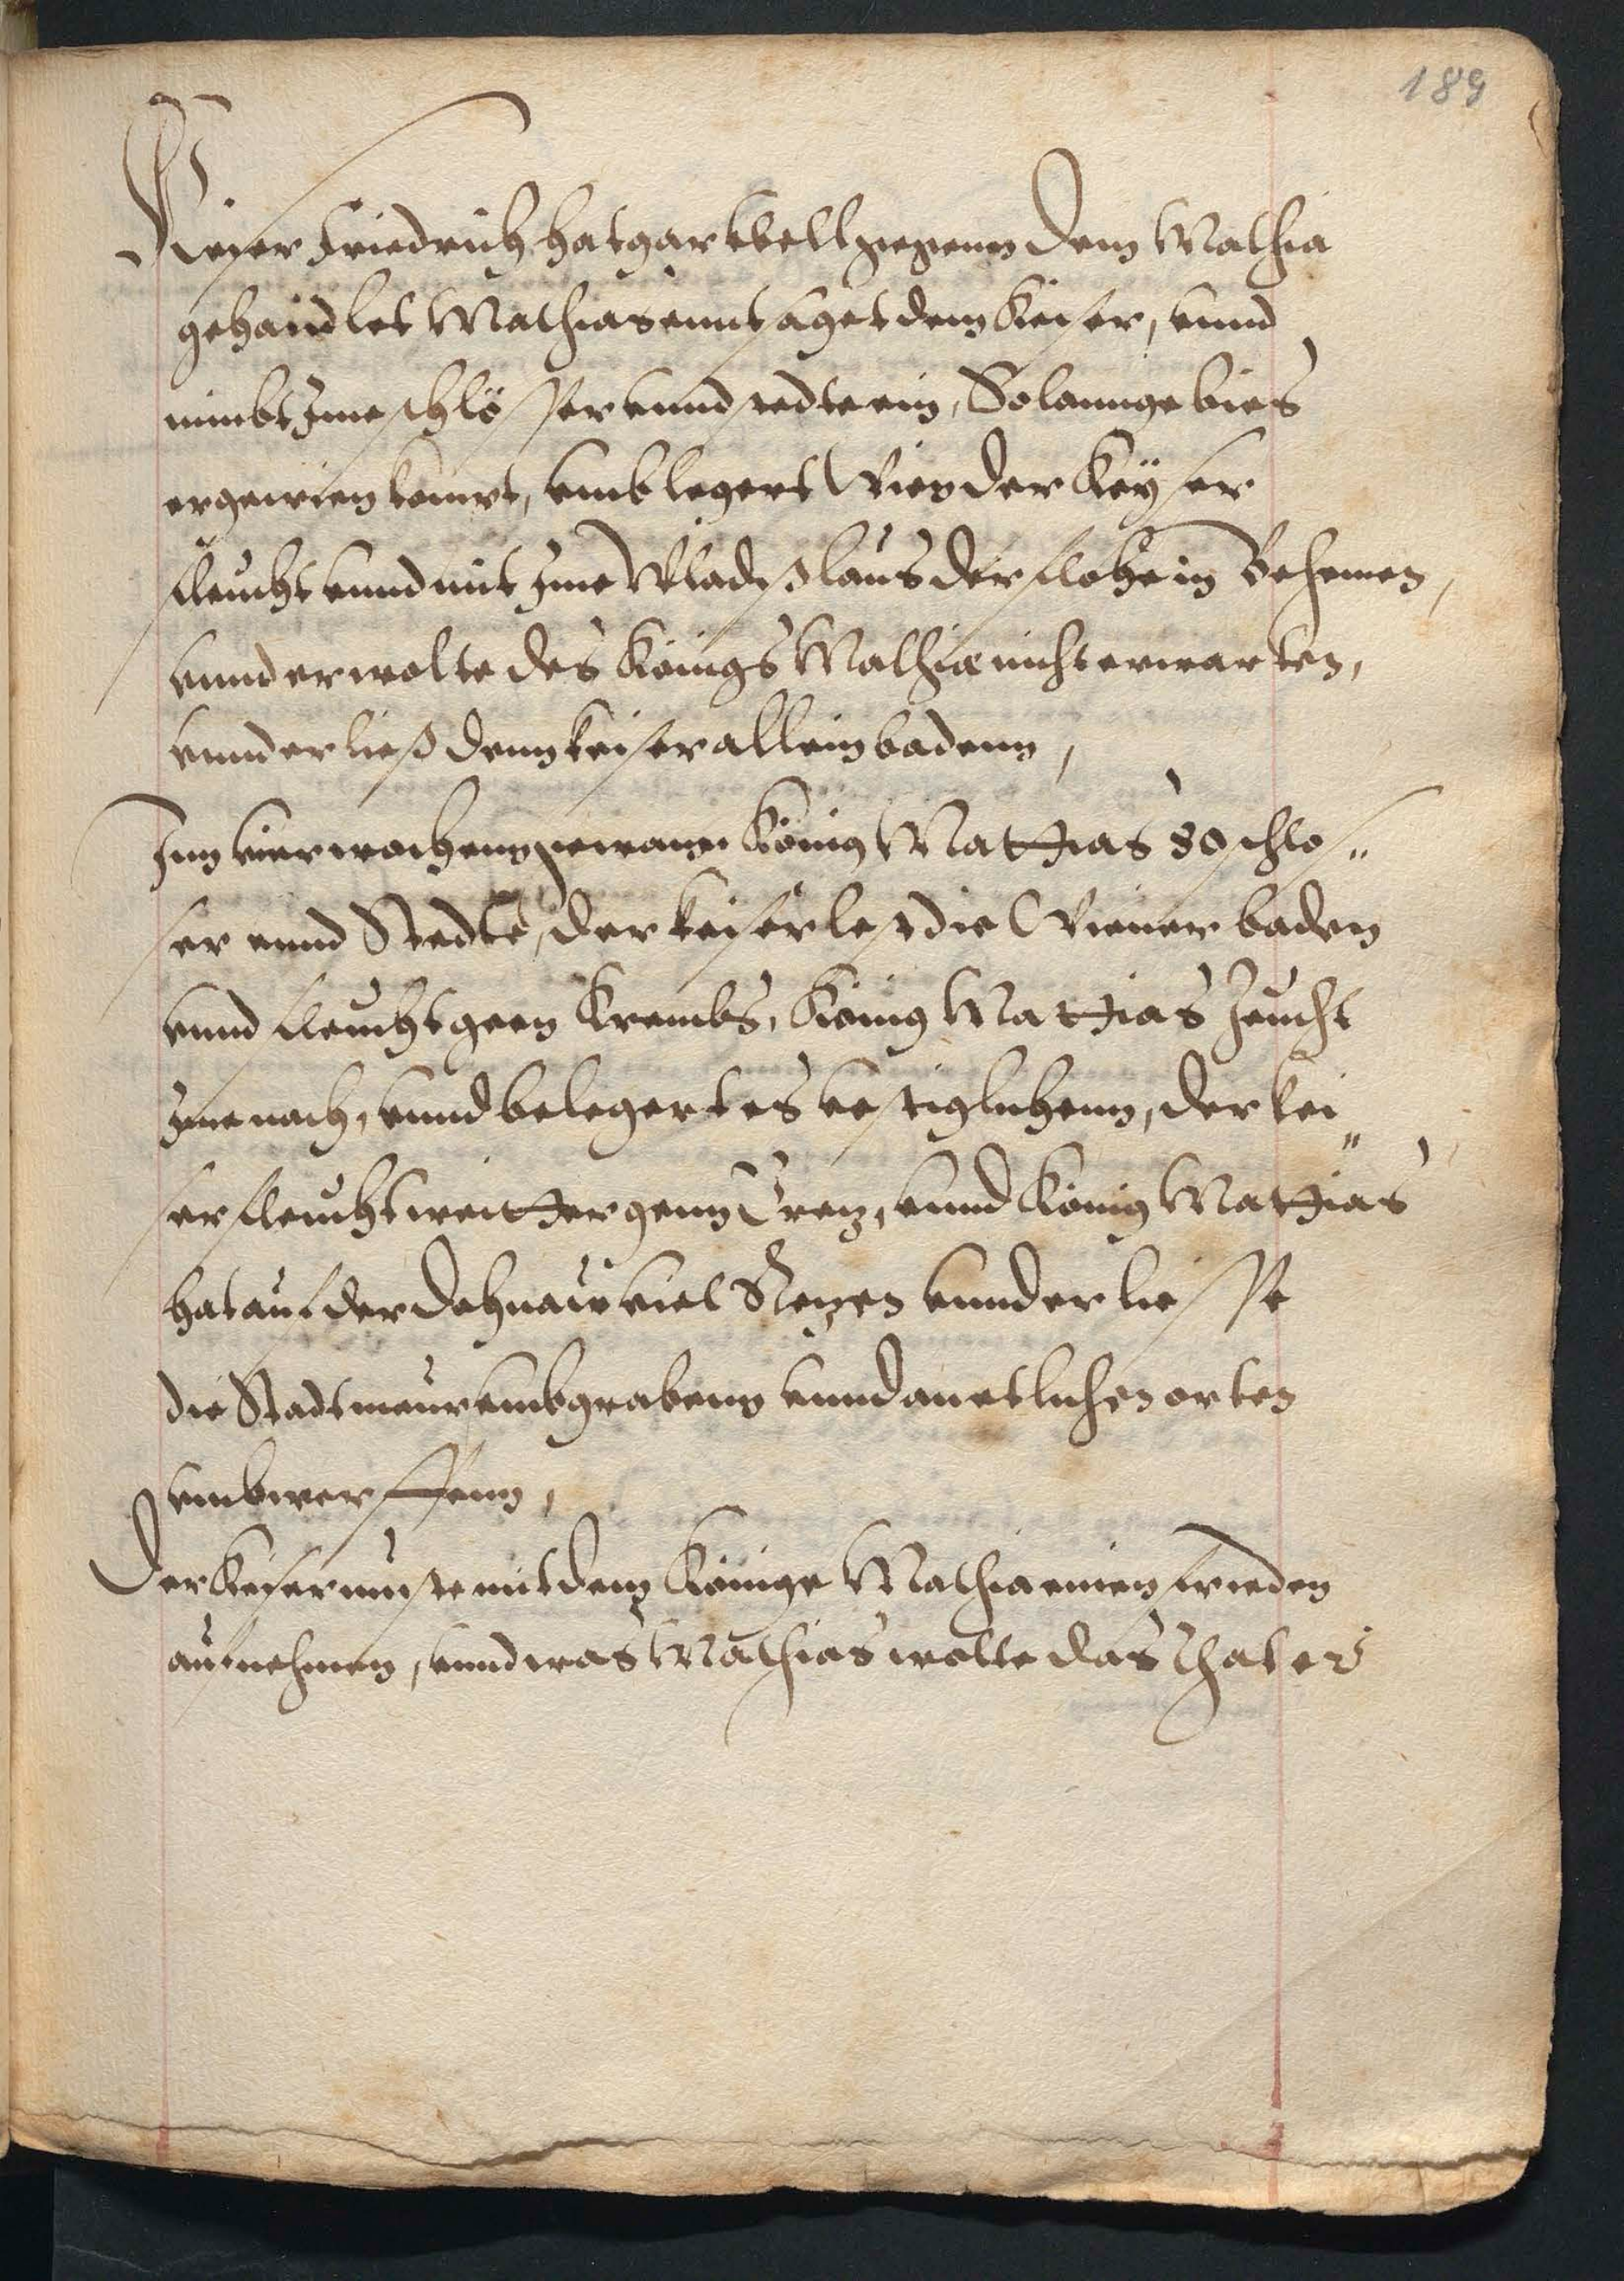 189
Dieser Friedrich hat gar kbell gegenn dem Mathia
gehandlet Mathias enntsaget dem Keiser, vnnd
nimbt Ime schlösser vnnd stedte ein, So lannge bies
er gen wien kompt, vmblegert Wien der Keÿser
fleucht vnnd mit Ime Wladislaus der flohe in Behemen,
vnnd er wolte des Königs Mathiæ nicht erwarten,
vnnd er ließ denn keiser allein badenn,
Inn vier wochenn gewann König Matthias 80 schlos„
ser vnnd Stedte, der keiser lest die Wiener baden
vnnd fleucht geen Krembs, König Matthias Zeucht
Ime nach, vnnd belegert es vestiglichenn, der kei„
ser fleucht weitther genn Grez, vnnd König Matthias
hat auf der Dohnaw viel Nezen vnnd er liesse
die Stadtmeur vmbgrabenn vnnd an etlichen orten
vmbwerffenn,
Der Keiser muste mit dem Könige Mathia einen frieden
aufnehmen, vnnd was Mathias wolte das that er